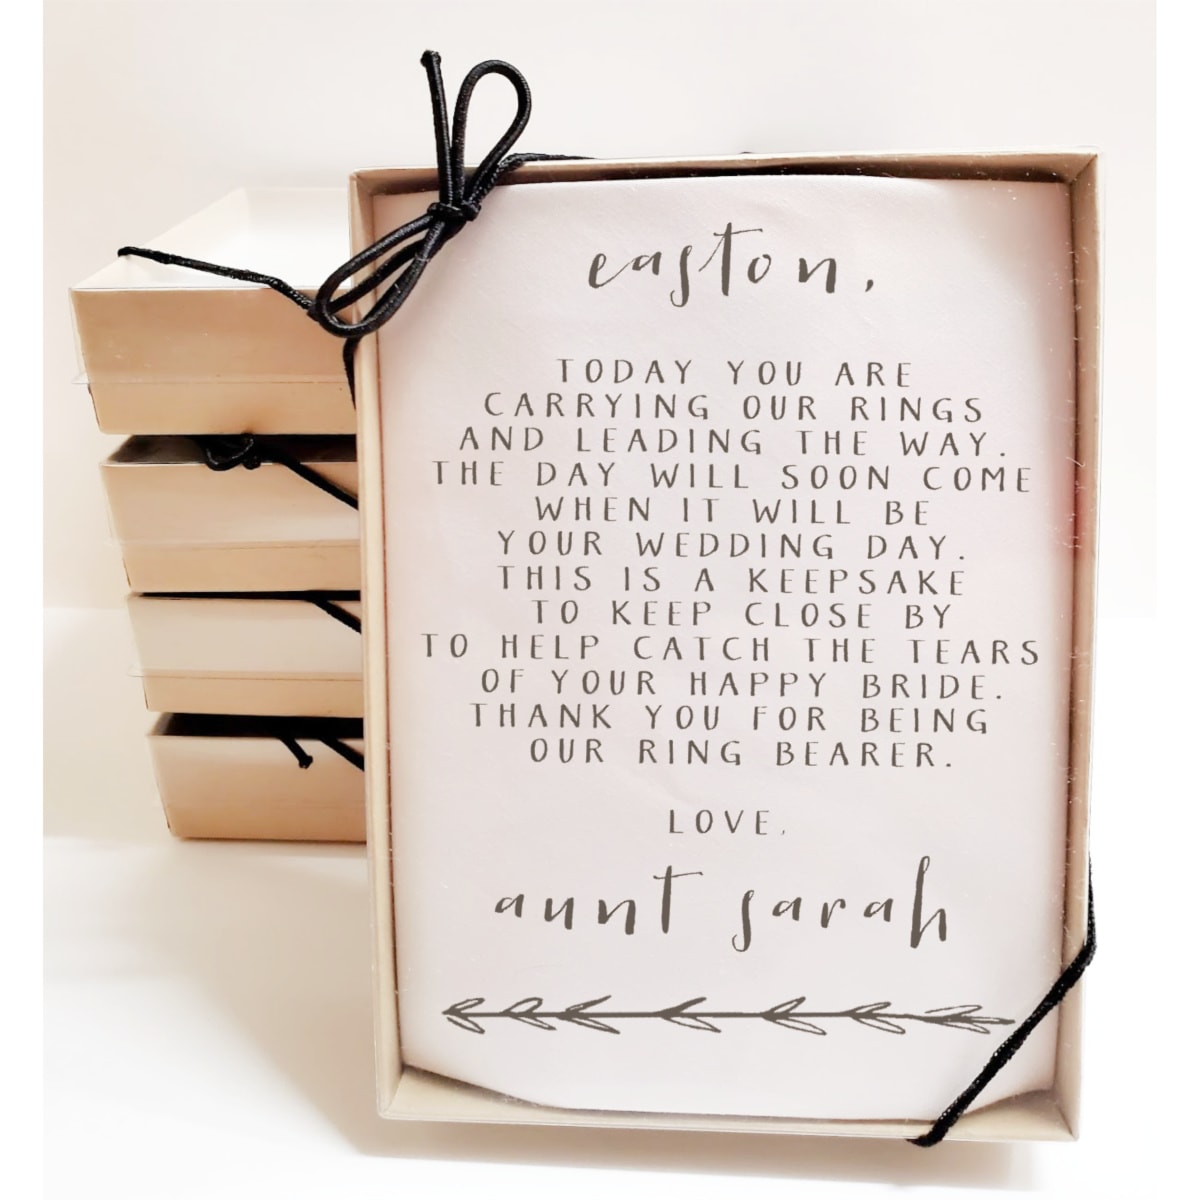 easton,
TODAY YOU ARE
CARRYING OUR RINGS
AND LEADING THE WAY.
THE DAY WILL SOON COME
WHEN IT WILL BE
YOUR WEDDING DAY.
THIS IS A KEEPSAKE
TO KEEP CLOSE BY
TO HELP CATCH THE TEARS
OF YOUR HAPPY BRIDE.
THANK YOU FOR BEING
OUR RING BEARER.
LOVE,
aunt sarah